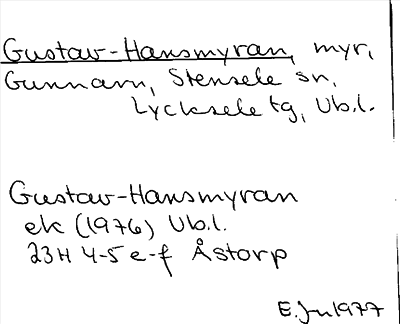 Gustav-Hansmyran, myr,
Gunnarn, Stensele sn,
Lycksele tg, Vb.l.
Gustav-Hansmyran
ek (1976) Vb.l.
23H 4-5 e-f Åstorp
E. Jn 1977